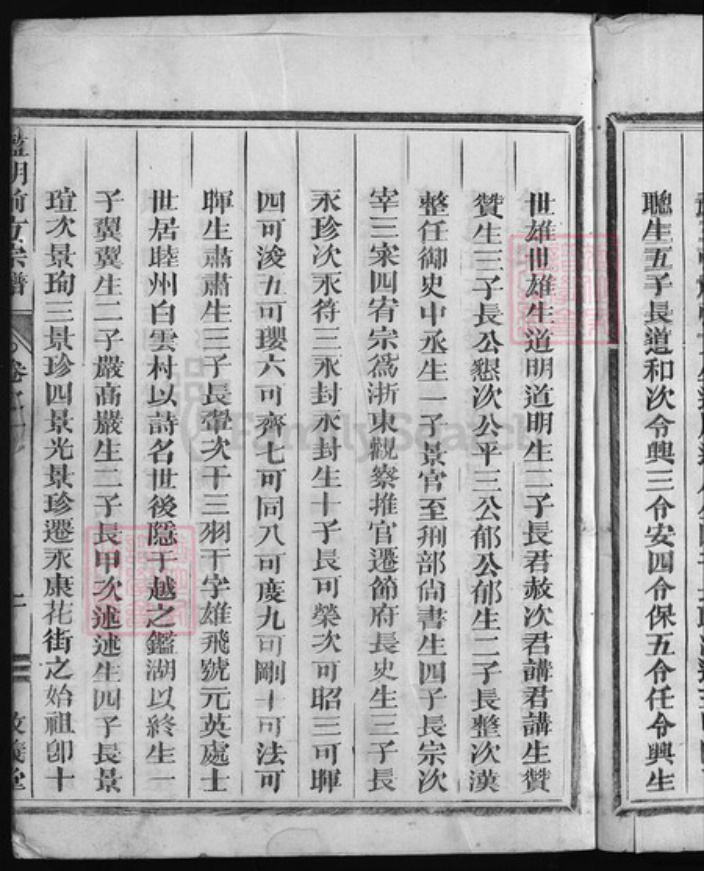 聰生五子長道和次令興三令安四令保五令任令興生
世雄世雄生道明道明生二子長君赦次君講君講生贊
贊生三子長公懇次公平三公郁公郁生二子長整次漢
整任御史中丞生一子景官至刑部尚書生四子長宗次
宰三寀四宥宗為浙東觀察推官遷節府長史生三子長
永珍次永符三永封永封生十子長可榮次可昭三可暉
四可浚五可瓔六可齊七可同八可度九可剛十可法可
暉生肅肅生三子長翬次干三羽干字雄飛號元英處士
世居睦州白雲村以詩名世後隱于越之鑑湖以終生一
子翼翼生二子嚴高嚴生二子長甲次述述生四子長景
瑄次景珣三景珍四景光景珍遷永康花街之始祖卽十
宗譜